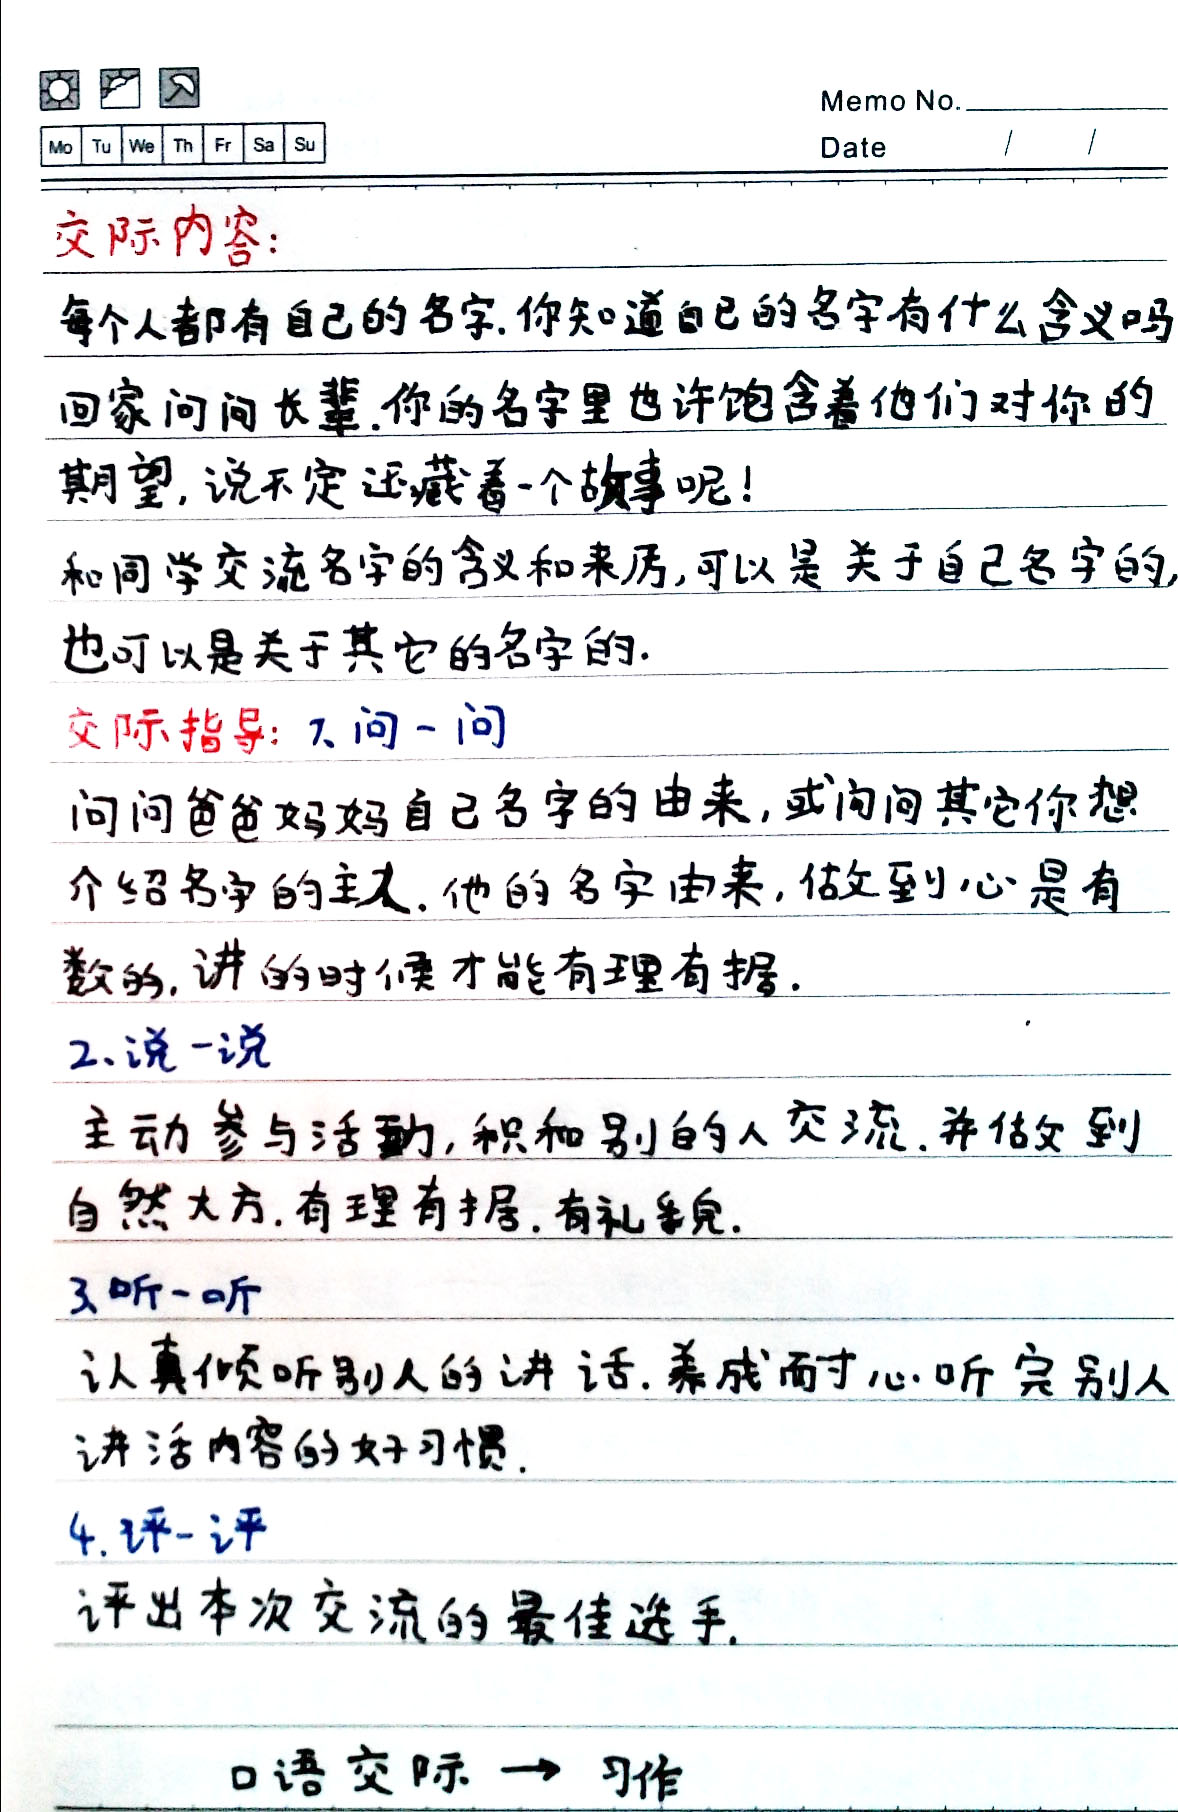 Memo No.
Mo Tu We Th Fr Sa Su
Date / /
交际内容:
每个人都有自己的名字.你知道自己的名字有什么含义吗
回家问问长辈.你的名字里也许饱含着他们对你的
期望,说不定还藏着一个故事呢!
和同学交流名字的含义和来历,可以是关于自己名字的,
也可以是关于其它的名字的.
交际指导: 1、问一问
问问爸爸妈妈自己名字的由来,或问问其它你想
介绍名字的主人.他的名字由来,做到心是有
数的.讲的时候才能有理有据.
2、说一说
主动参与活動,积和别的人交流.并做到
自然大方.有理有据.有礼貌.
3、听一听
认真倾听别人的讲话.养成耐心听完别人
讲活内容的好习惯.
4.评一评
评出本次交流的最佳选手.
口语交际 → 习作